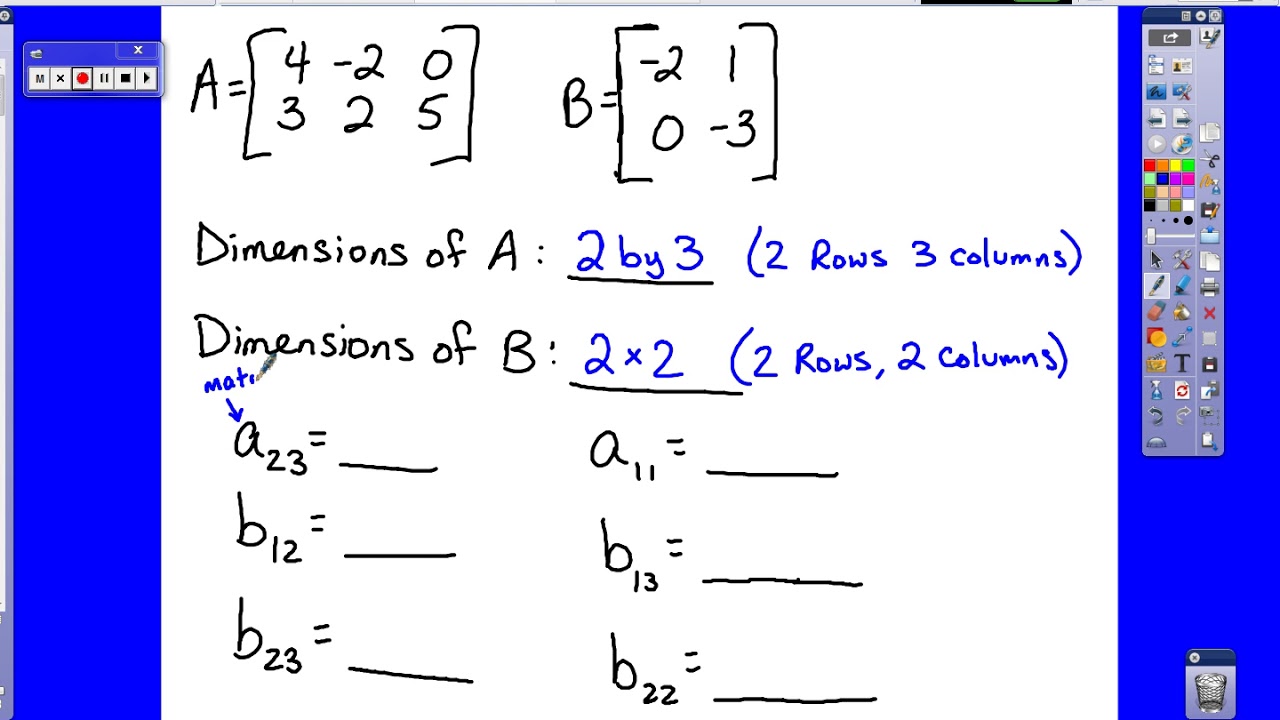 A = [ 4 -2 0
3 2 5 ]
B = [ -2 1
0 -3 ]
Dimensions of A : 2 by 3 (2 Rows 3 columns)
Dimensions of B : 2 × 2 (2 Rows, 2 columns)
a₂₃ = ____
a₁₁ = ____
b₁₂ = ____
b₁₃ = ____
b₂₃ = ____
b₂₂ = ____